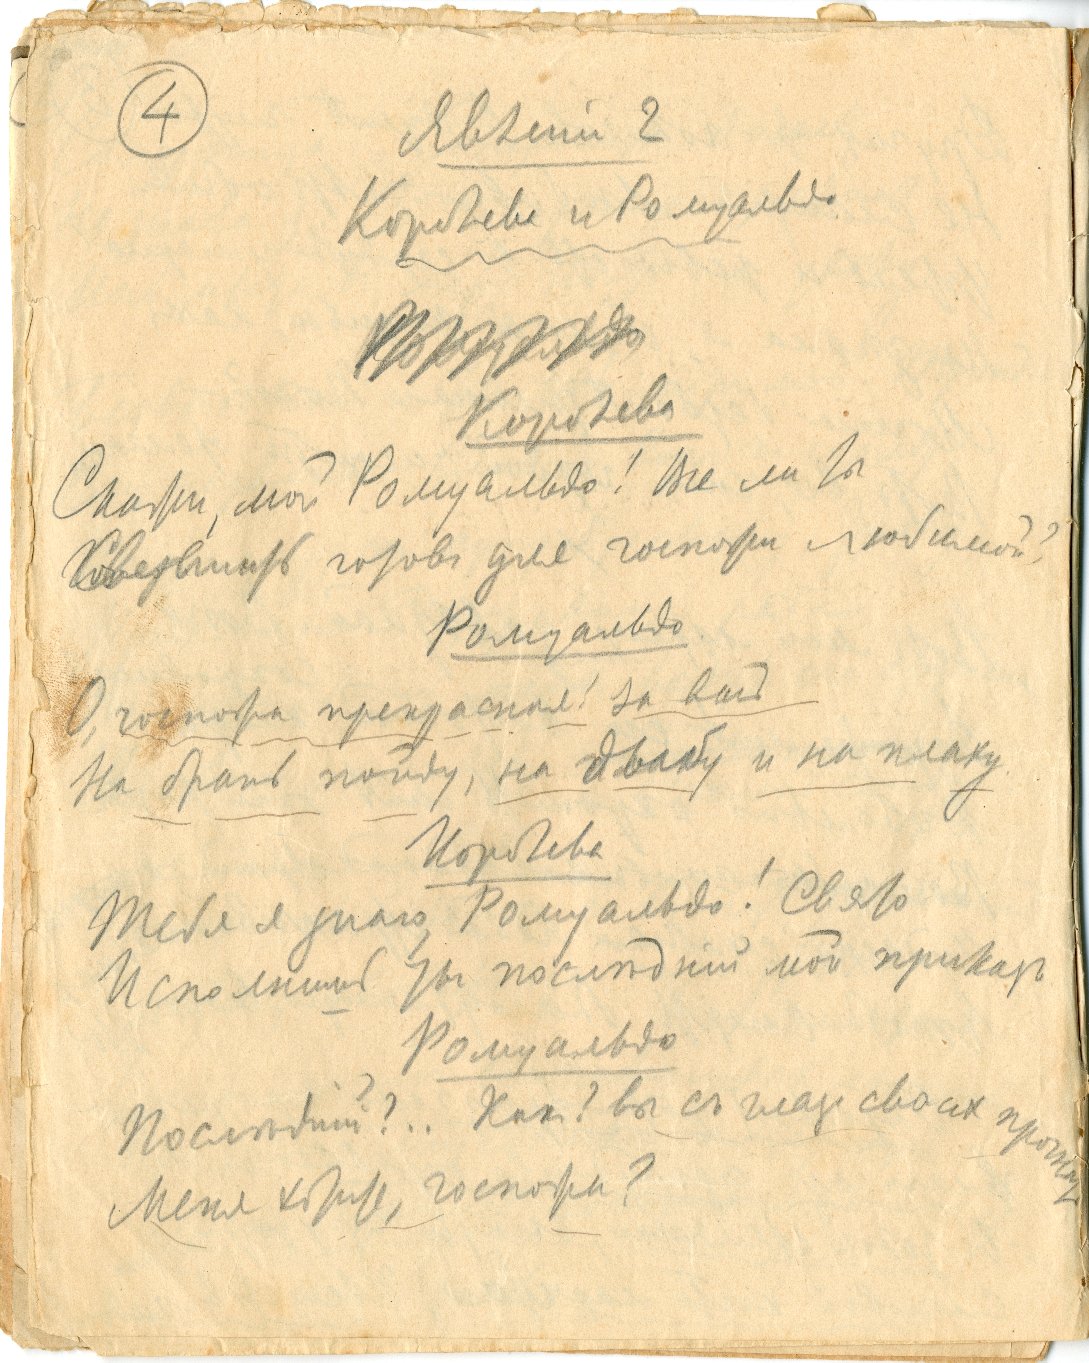 4
Явленіе 2
Королева и Ромуальдо
Ромуальдо
Королева
Скажи, мой Ромуальдо! Все ли ты
готовъ для госпожи любимой?
Ромуальдо
О, госпожа прекрасная! За васъ
На брань пойду, на дыбу и на плаху.
Королева
Тебя я знаю, Ромуальдо! Свято
Исполнишь ты послѣдній мой приказъ
Ромуальдо
Послѣдній?.. Какъ? Вы съ глазъ своихъ прочь
Меня хотите, госпожа?